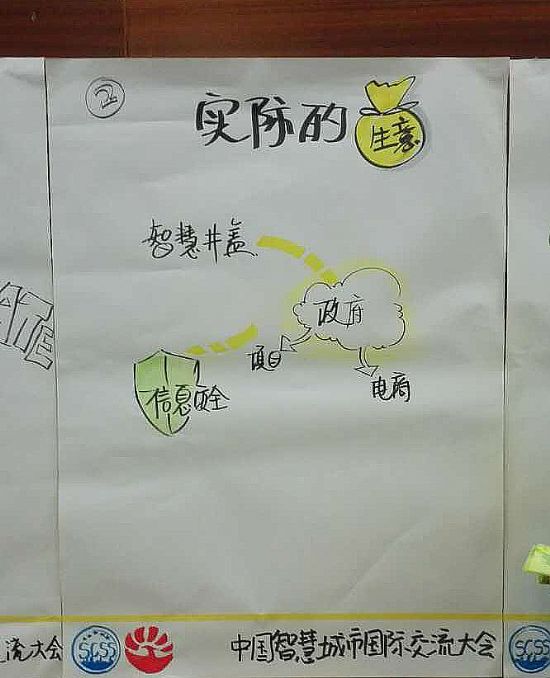 2
实际的
生意
智慧井盖
政府
项目
电商
信息安全
ATE
流大会
SCSS
中国智慧城市国际交流大会
SCSS